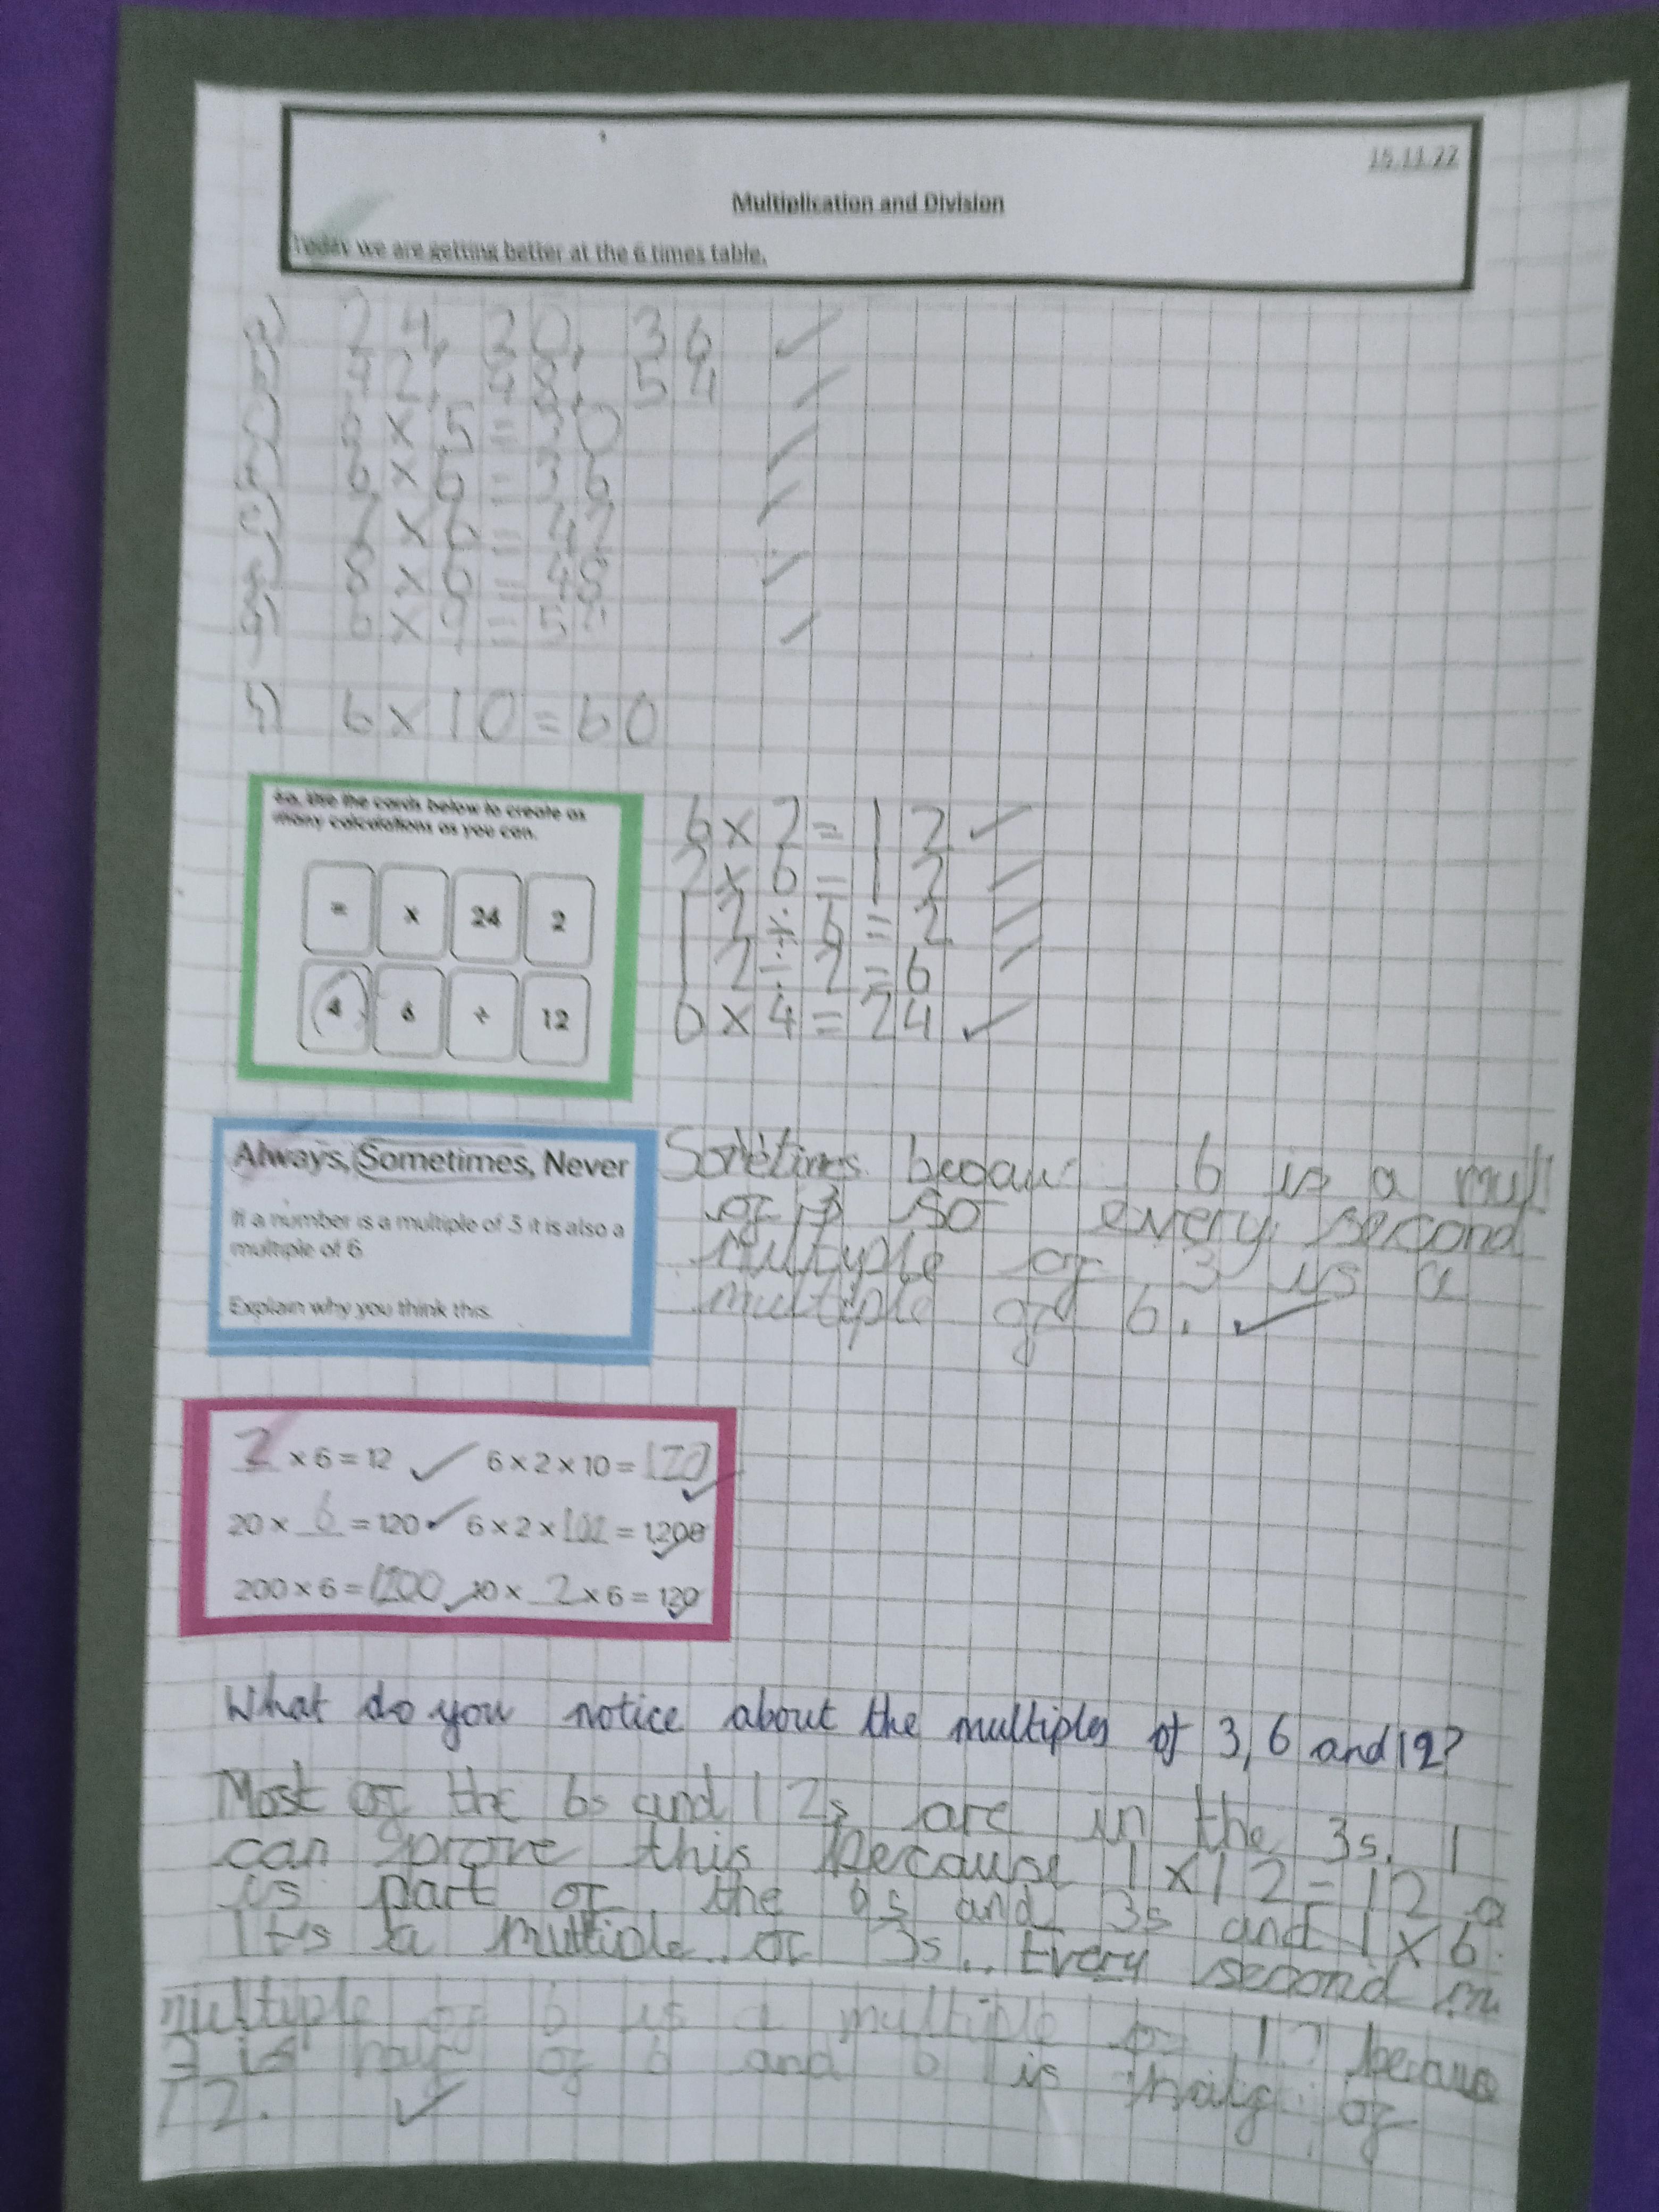 15.11.22
Multiplication and Division
Today we are getting better at the 6 times table.
a) 24, 30, 36
b) 42, 48, 54
c) 6 x 5 = 30
d) 6 x 6 = 36
e) 7 x 6 = 42
f) 8 x 6 = 48
g) 6 x 9 = 54
h) 6 x 10 = 60
Use the cards below to create as
many calculations as you can.
= x 24 2
4 6 ÷ 12
6 x 2 = 12
2 x 6 = 12
12 ÷ 6 = 2
12 ÷ 2 = 6
6 x 4 = 24
Always, Sometimes, Never
If a number is a multiple of 3 it is also a
multiple of 6
Explain why you think this.
Sometimes 6 is a mul
of 3 so every second
multyple of 3 is a
multiple of 6.
2 x 6 = 12 6 x 2 x 10 = 120
20 x 6 = 120 6 x 2 x = 1,200
200 x 6 = 1200 10 x 2 x 6 = 120
What do you notice about the multiples of 3, 6 and 12?
Most of the 6s and 12s are in the 3s. I
can prove this because 1 x 12 = 12
is part of the 6s and 3s and 1 x 6
It's a multiple of 3s. Every second m
multiple of 6 is a multiple of 12 because
3 is half of 6 and 6 is half of
12.